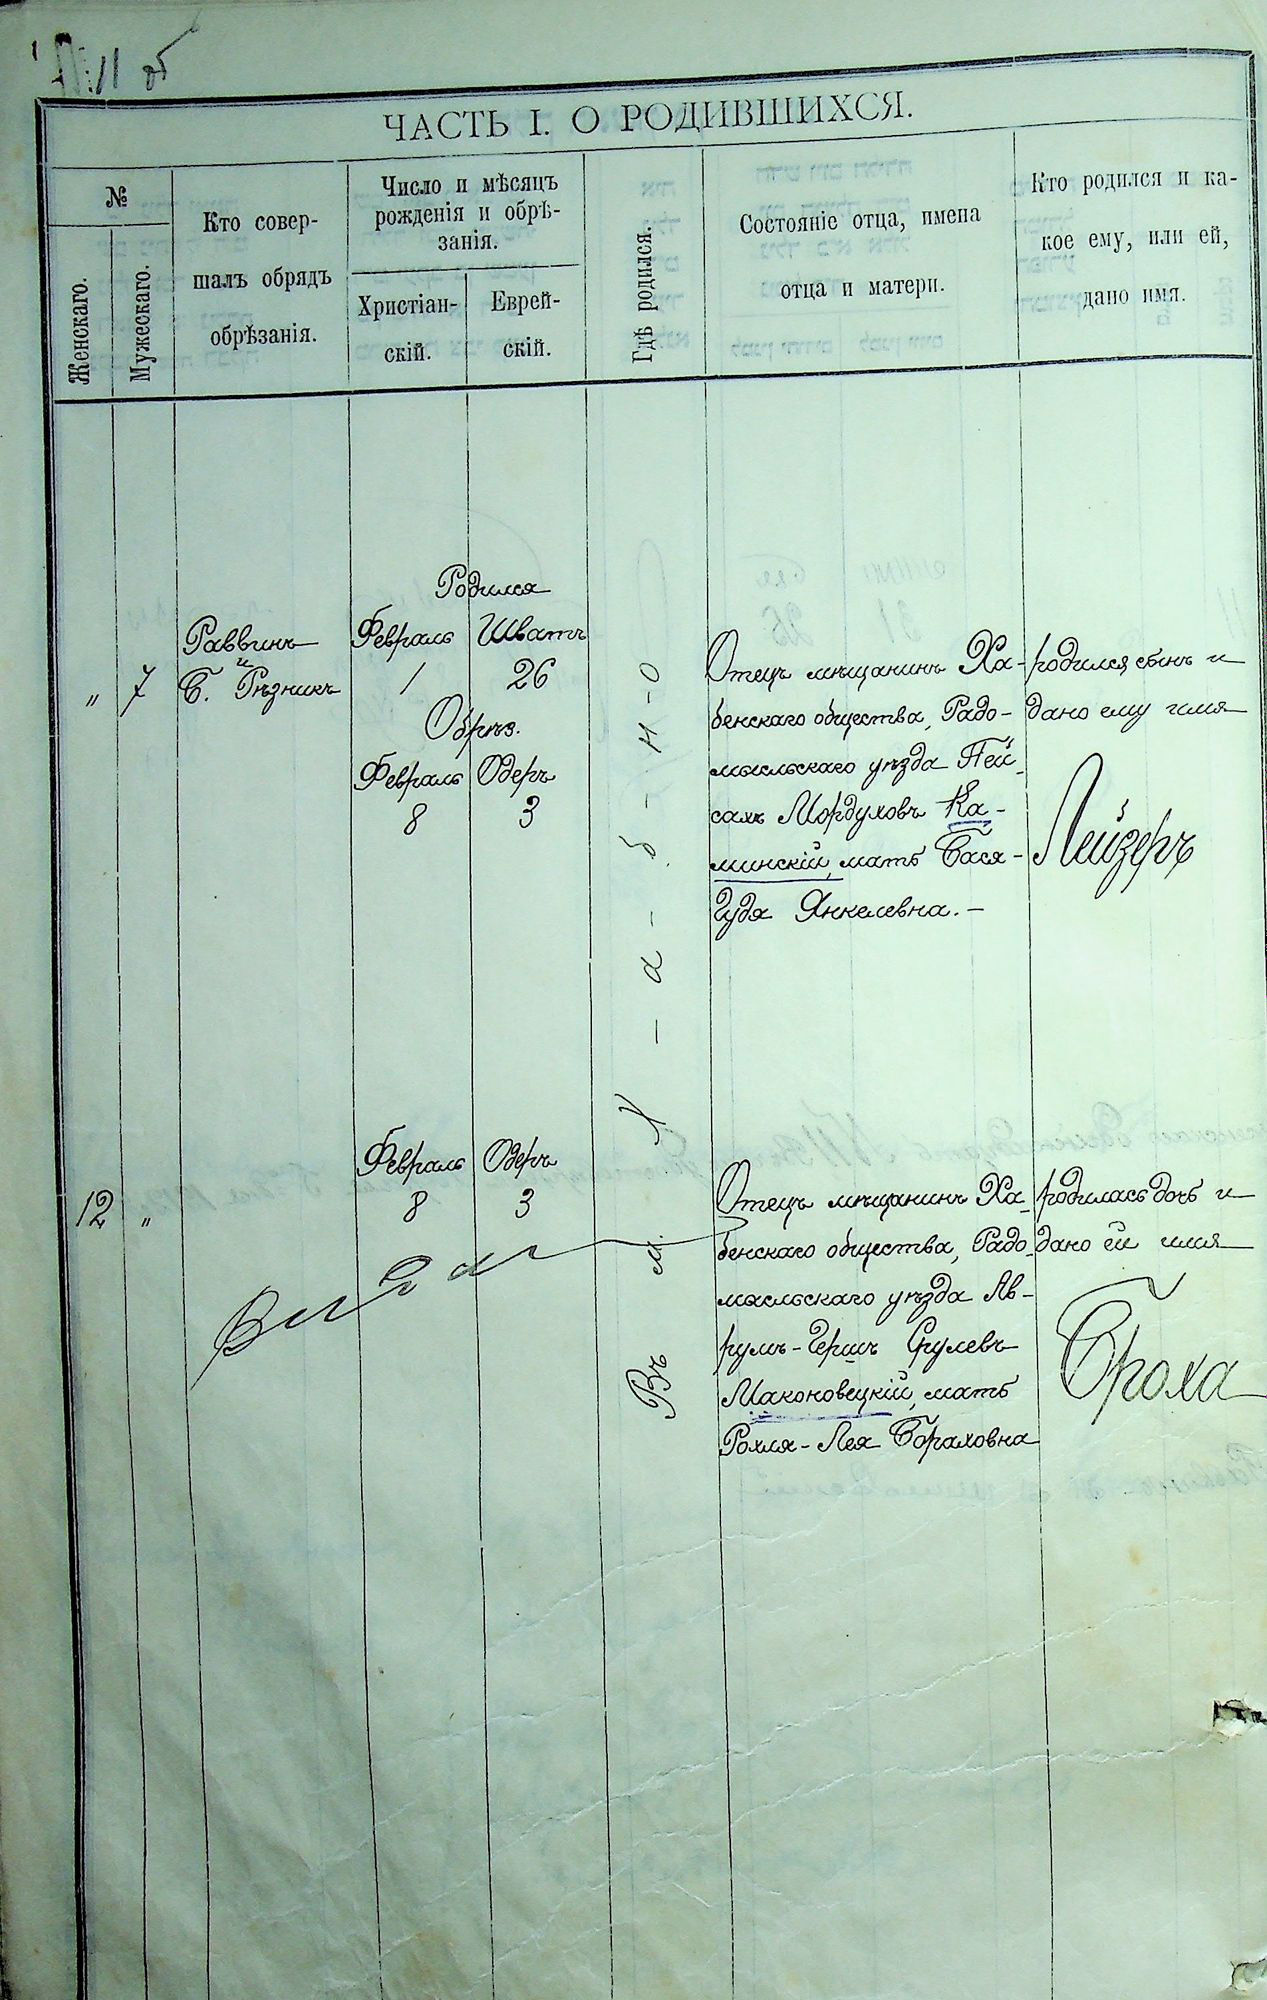 11 об
ЧАСТЬ I. О РОДИВШИХСЯ.
№
Женскаго.
Мужескаго.
Кто совер-
шалъ обрядъ
обрѣзанія.
Число и мѣсяцъ
рожденія и обрѣ-
занія.
Христіан-
скій.
Еврей-
скій.
Гдѣ родился.
Состояніе отца, имена
отца и матери.
Кто родился и ка-
кое ему, или ей,
дано имя.
"
7
Раввинъ
и
Б. Рѣзникъ
Родился
Февраль Шватъ
1 26
Обрѣз.
Февраль Одеръ
8 3
Въ м. Х-а-б-н-о
Отецъ мѣщанинъ Ха-
бенскаго общества, Радо-
мысльскаго уѣзда Пей-
сахъ Мордуховъ Ка-
минскій, мать Бася-
Гудя Янкелевна.-
родился сынъ и
дано ему имя
Лейзеръ
12
"
Февраль Одеръ
8 3
Отецъ мѣщанинъ Ха-
бенскаго общества, Радо-
мысльскаго уѣзда Ав-
румъ-Гершъ Срулевъ
Маконовецкій, мать
Рохля-Лея Бораховна
родилась дочь и
дано ей имя
Броха